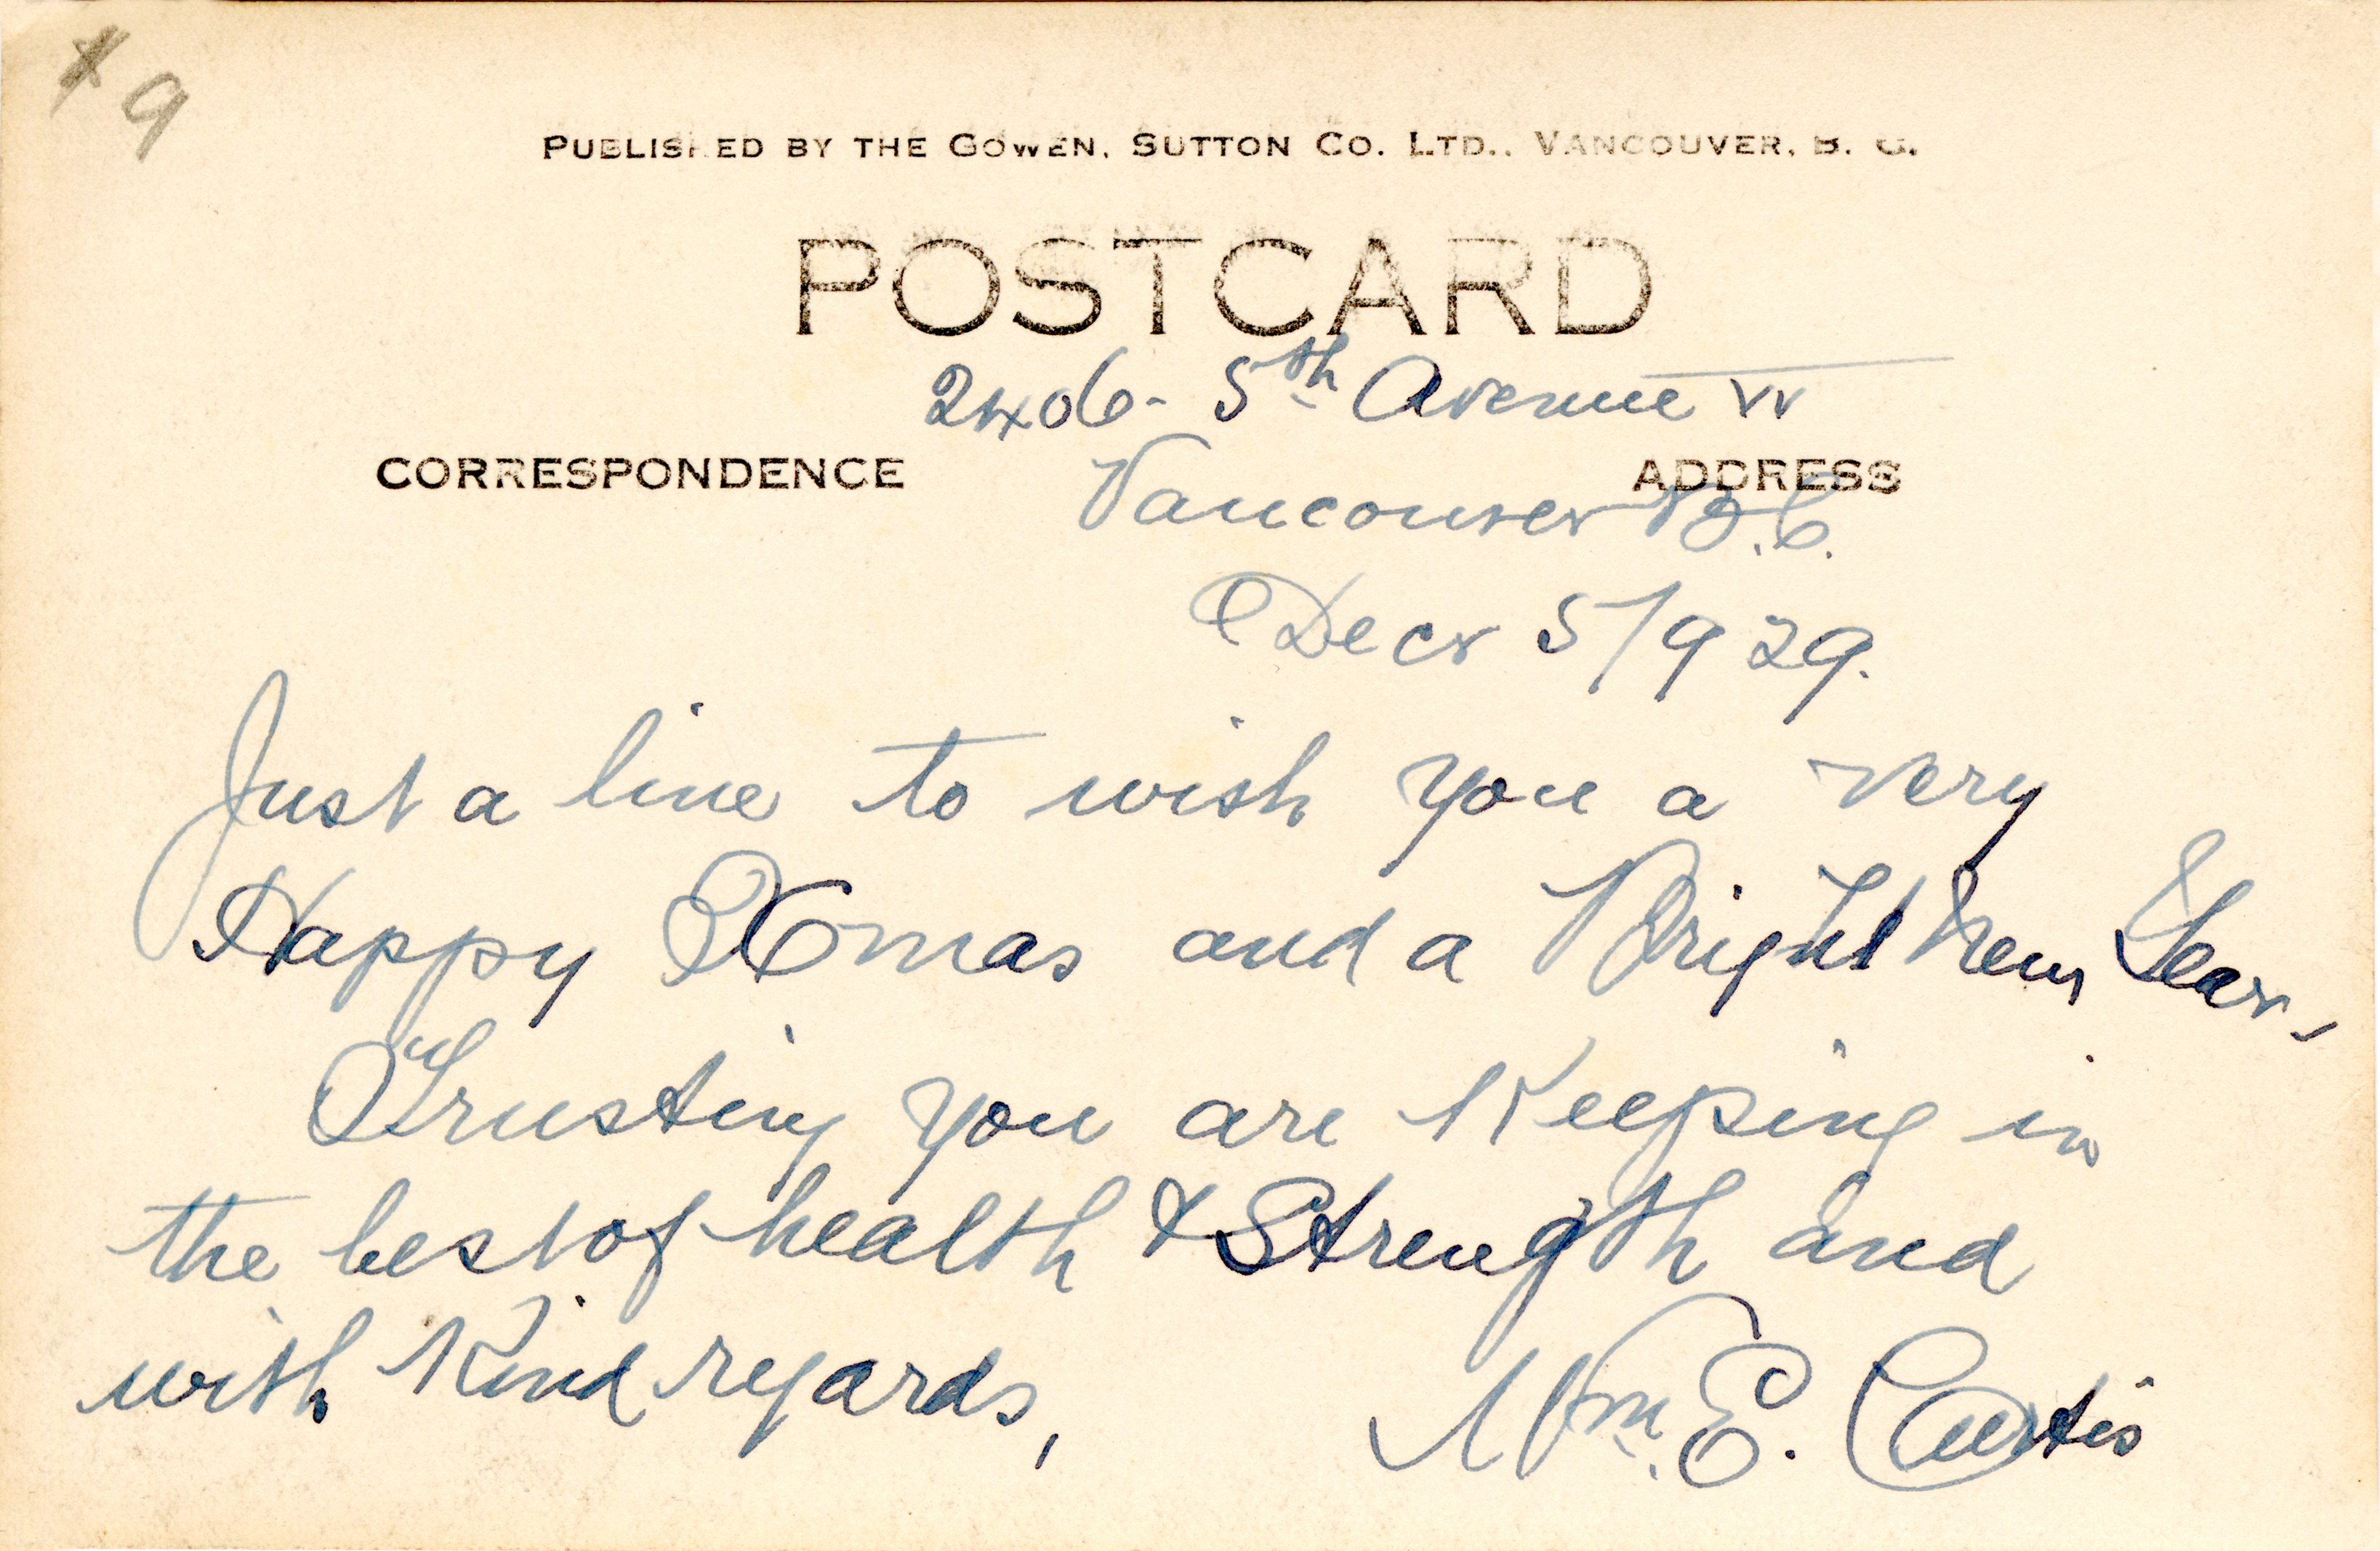 x 9
PUBLISHED BY THE GOWEN, SUTTON CO. LTD., VANCOUVER, B. C.
POSTCARD
2406 - 5th Avenue W
CORRESPONDENCE
ADDRESS
Vancouver B.C.
Decr 5/929.
Just a line to wish you a very
Happy Xmas and a Bright New Year,
Trusting you are Keeping in
the best of health & Strength and
with Kind regards,
Wm. E. Curtis